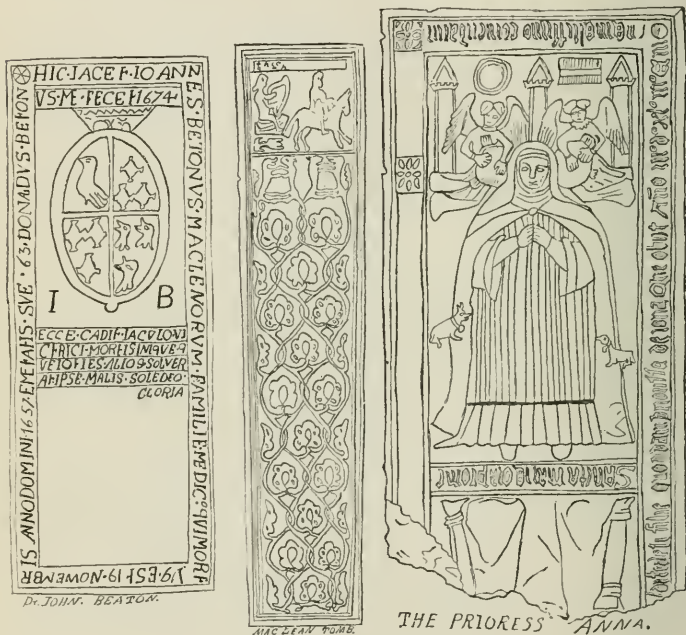 HIC·IACET·IOANN
ES·BETONVS·MACLENORVM·FAMILIE·MEDIC9·QVI·MORT
V9·EST·19·NOMEMBR
IS ANNO DOMINI·1657·ETATIS·SVE·63·DONADVS·BETON
VS·ME·FECET·1674·
I B
ECCE·CADIT·IACVLOVI
CTRICI·MORTIS INIQVE·Q
VETOTIES·ALIO9·SOLVER
ATIPSE·MALIS·SOLEDEO·
GLORIA
Dr. JOHN. BEATON.
MACLEAN TOMB.
filia quondam priorissa de iona que obiit año
Sancta maria ora pro me
THE PRIORESS ANNA.